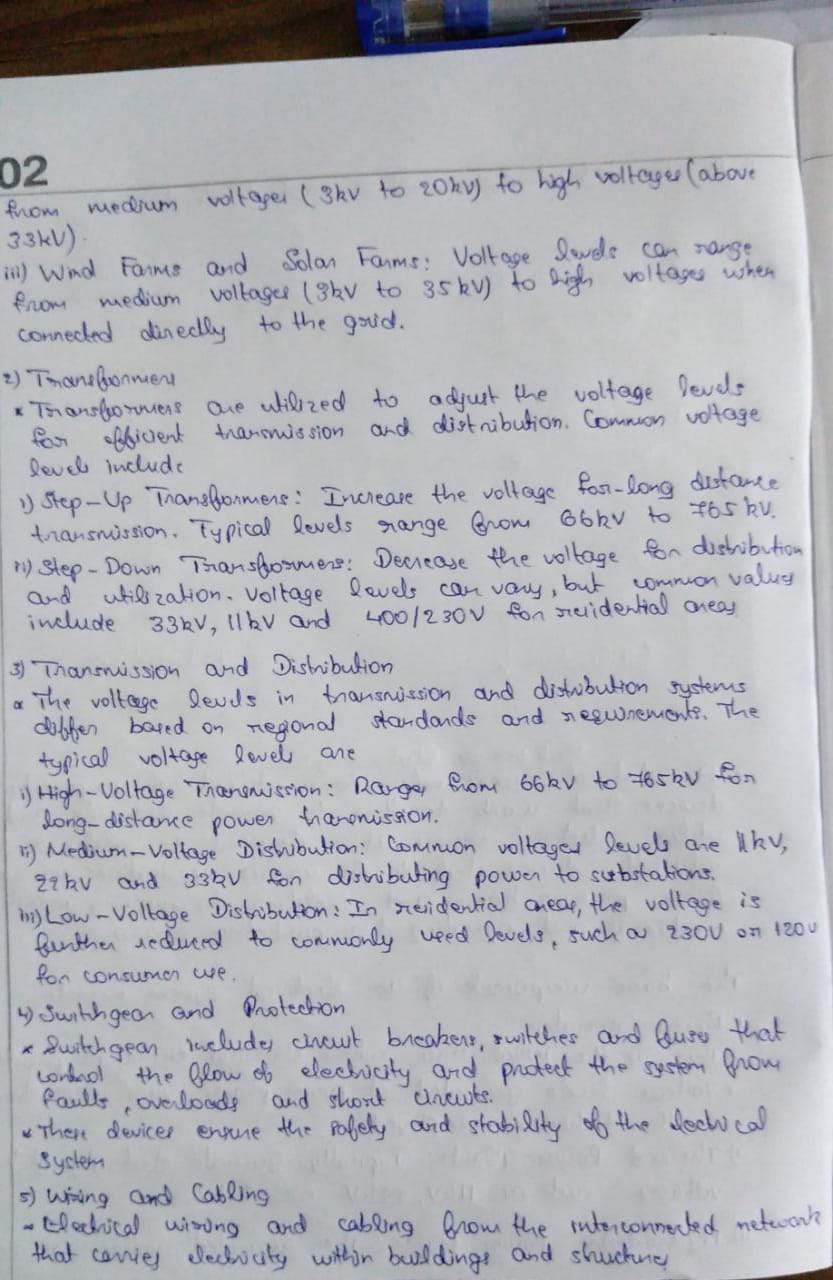 02
from medium voltages (3kV to 20kV) to high voltages (above
33kV).
iii) Wind Farms and Solar Farms: Voltage levels can range
from medium voltages (3kV to 35kV) to high voltages when
connected directly to the grid.
2) Transformers
* Transformers are utilized to adjust the voltage levels
for efficient transmission and distribution. Common voltage
levels include
i) Step-Up Transformers: Increase the voltage for-long distance
transmission. Typical levels range from 66kV to 765kV.
ii) Step-Down Transformers: Decrease the voltage for distribution
and utilization. Voltage levels can vary, but common values
include 33kV, 11kV and 400/230V for residential areas
3) Transmission and Distribution
* The voltage levels in transmission and distribution systems
differ based on regional standards and requirements. The
typical voltage levels are
i) High-Voltage Transmission: Ranges from 66kV to 765kV for
long-distance power transmission.
ii) Medium-Voltage Distribution: Common voltages levels are 11kV,
22kV and 33kV for distributing power to substations.
iii) Low-Voltage Distribution: In residential areas, the voltage is
further reduced to commonly used levels, such as 230V or 120V
for consumer use.
4) Switchgear and Protection
* Switchgear includes circuit breakers, switches and fuses that
control the flow of electricity and protect the system from
faults, overloads and short circuits.
* These devices ensure the safety and stability of the electrical
system
5) Wiring and Cabling
* Electrical wiring and cabling from the interconnected network
that carries electricity within buildings and structures